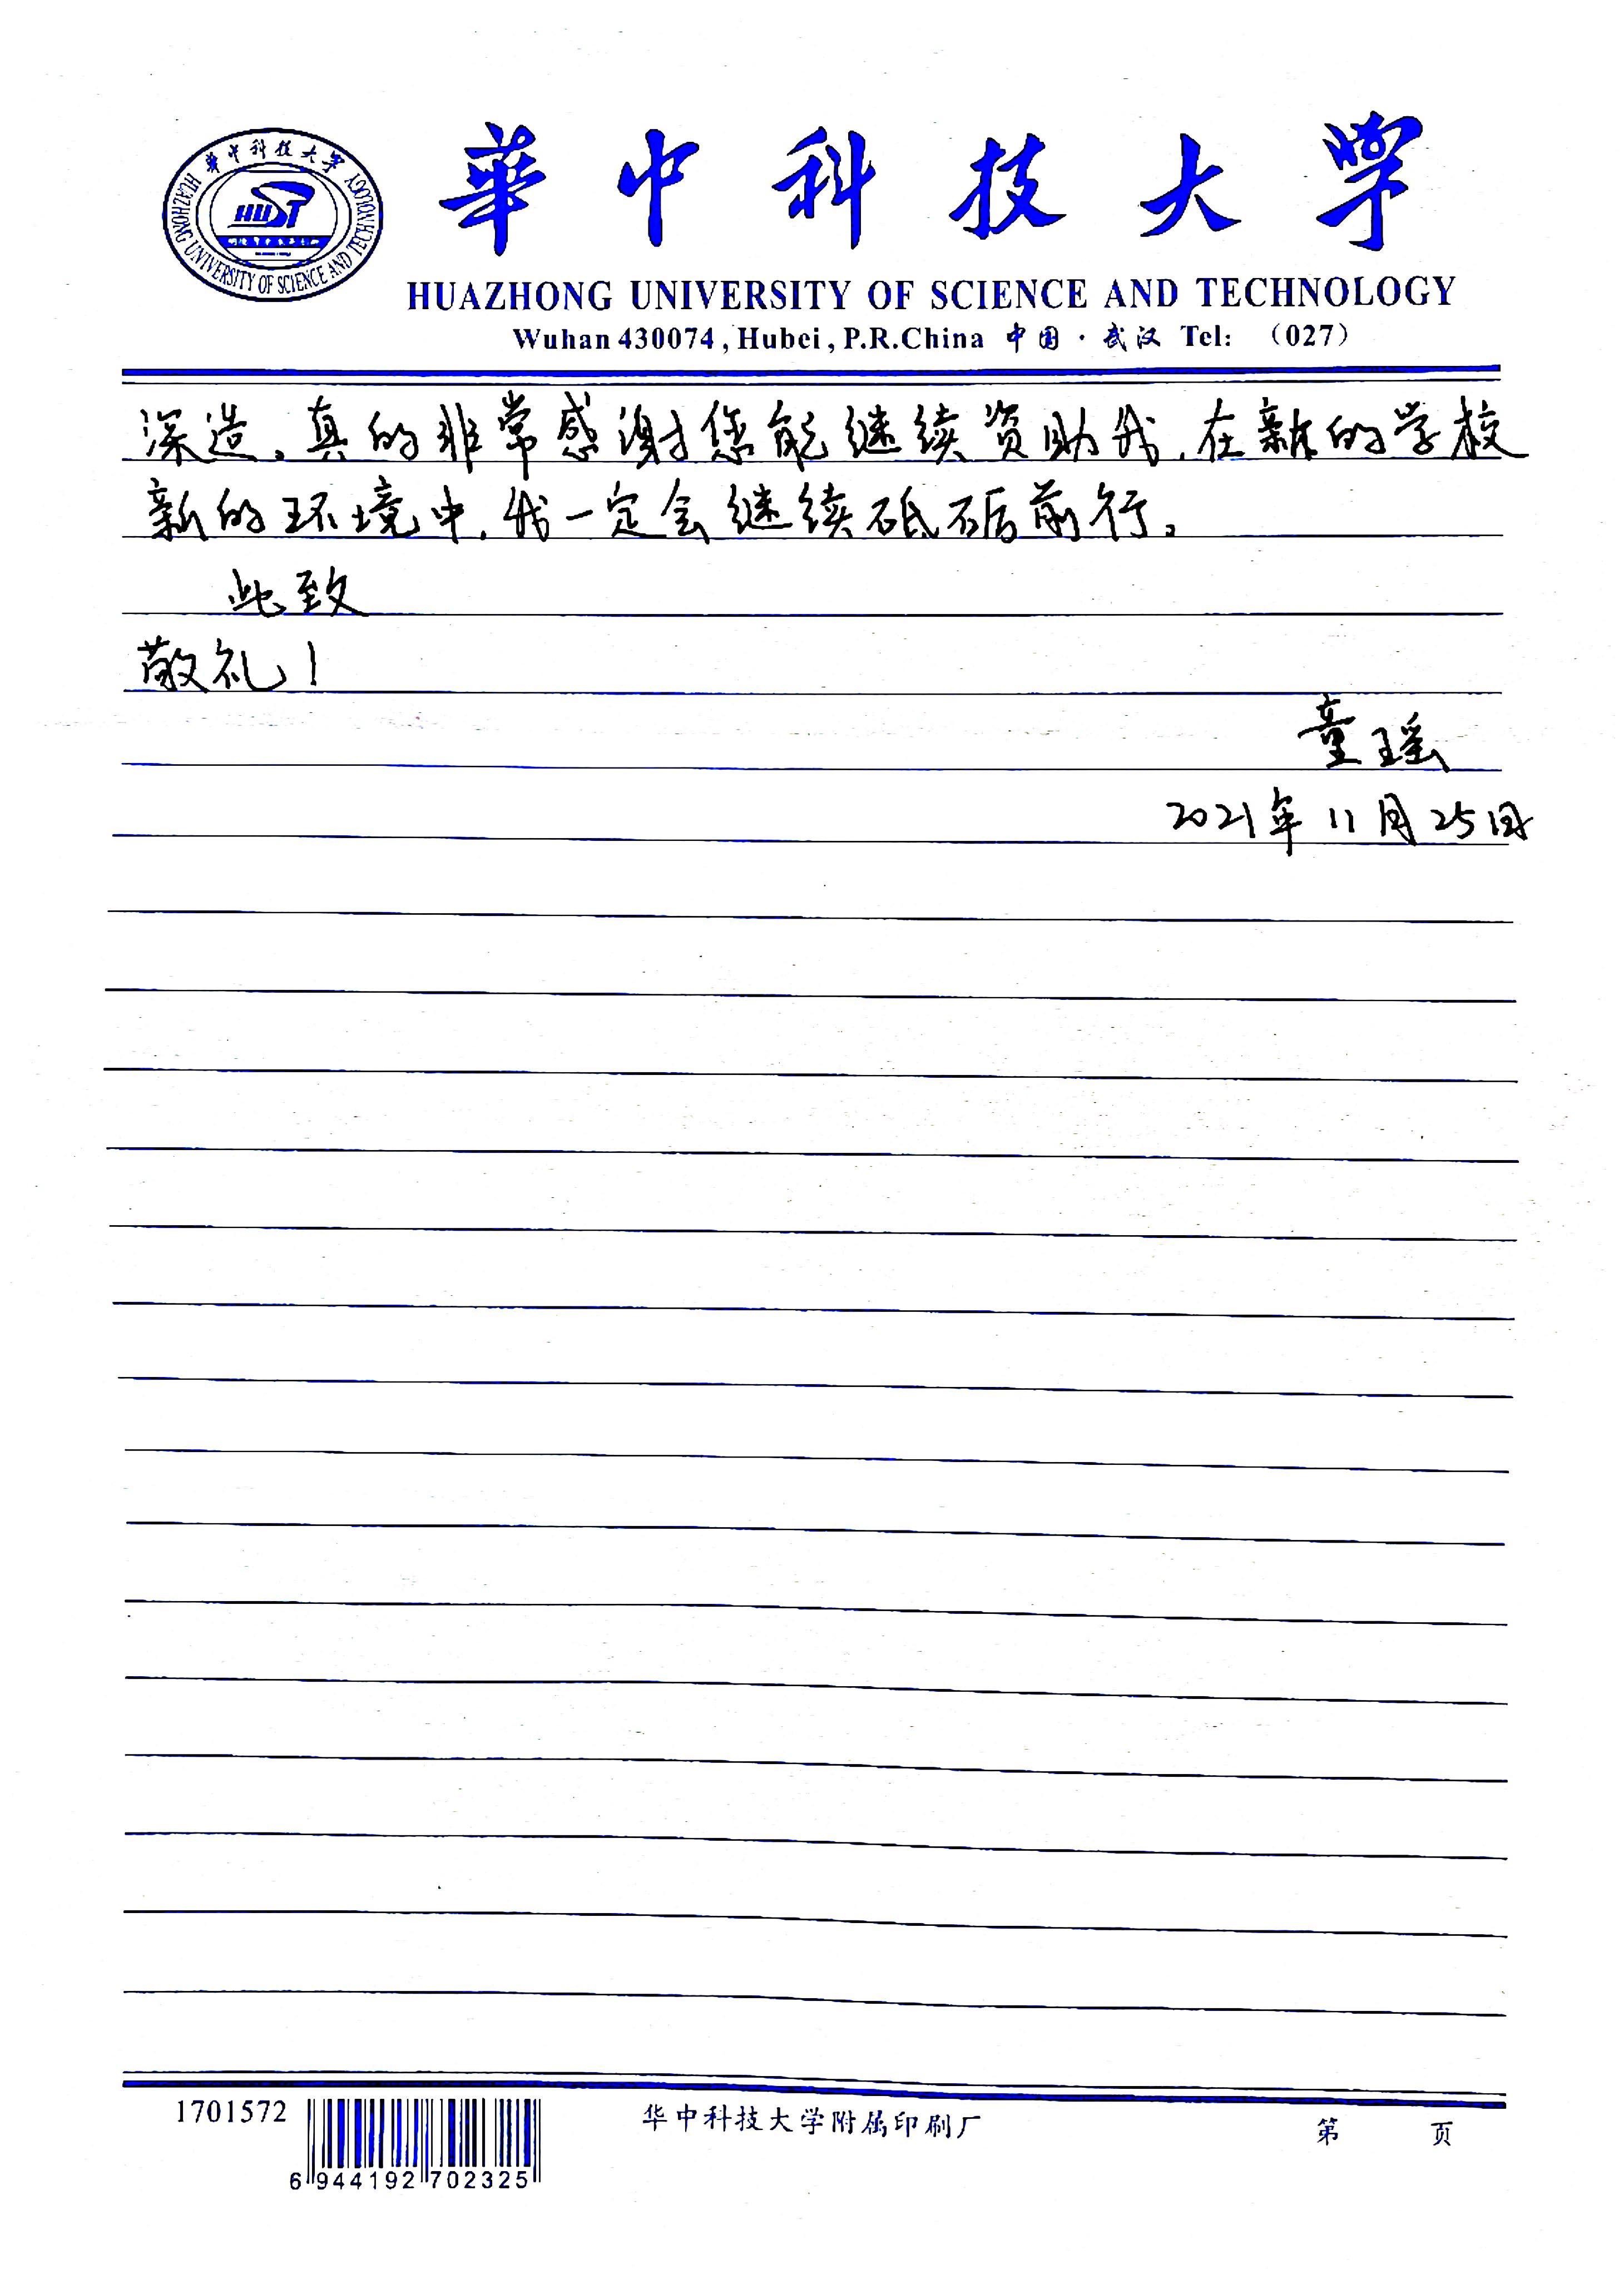 華中科技大学
HUAZHONG UNIVERSITY OF SCIENCE AND TECHNOLOGY
HUST
華中科技大学
HUAZHONG UNIVERSITY OF SCIENCE AND TECHNOLOGY
Wuhan 430074, Hubei, P.R.China 中国·武汉 Tel: (027)
深造。真的非常感谢您能继续资助我,在新的学校
新的环境中,我一定会继续砥砺前行。
此致
敬礼!
童瑶
2021年11月25日
1701572
华中科技大学附属印刷厂
第 页
6 944192 702325